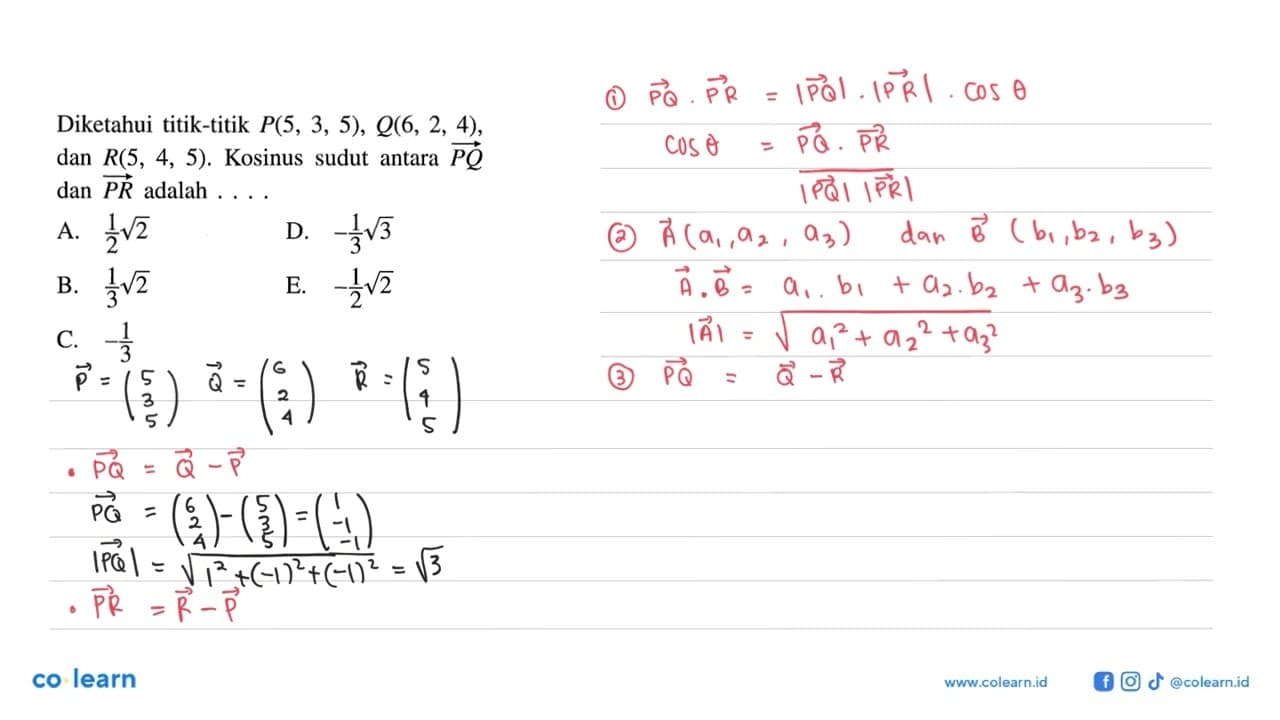 Diketahui titik-titik P(5, 3, 5), Q(6, 2, 4),
dan R(5, 4, 5). Kosinus sudut antara \overrightarrow{PQ}
dan \overrightarrow{PR} adalah . . . .
A. \frac{1}{2}√2
D. -\frac{1}{3}√3
B. \frac{1}{3}√2
E. -\frac{1}{2}√2
C. -\frac{1}{3}
\vec{P} = (5 3 5) \vec{Q} = (6 2 4) \vec{R} = (5 4 5)
• \overrightarrow{PQ} = \vec{Q} - \vec{P}
\overrightarrow{PQ} = (6 2 4) - (5 3 5) = (1 -1 -1)
|\overrightarrow{PQ}| = \sqrt{1² + (-1)² + (-1)²} = √3
• \overrightarrow{PR} = \vec{R} - \vec{P}
① \overrightarrow{PQ} . \overrightarrow{PR} = |\overrightarrow{PQ}| . |\overrightarrow{PR}| . cos θ
cos θ = \frac{\overrightarrow{PQ} . \overrightarrow{PR}}{|\overrightarrow{PQ}| |\overrightarrow{PR}|}
② \vec{A} (a₁, a₂, a₃) dan \vec{B} (b₁, b₂, b₃)
\vec{A} . \vec{B} = a₁ . b₁ + a₂ . b₂ + a₃ . b₃
|\vec{A}| = \sqrt{a₁² + a₂² + a₃²}
③ \overrightarrow{PQ} = \vec{Q} - \vec{R}
co learn
www.colearn.id
@colearn.id